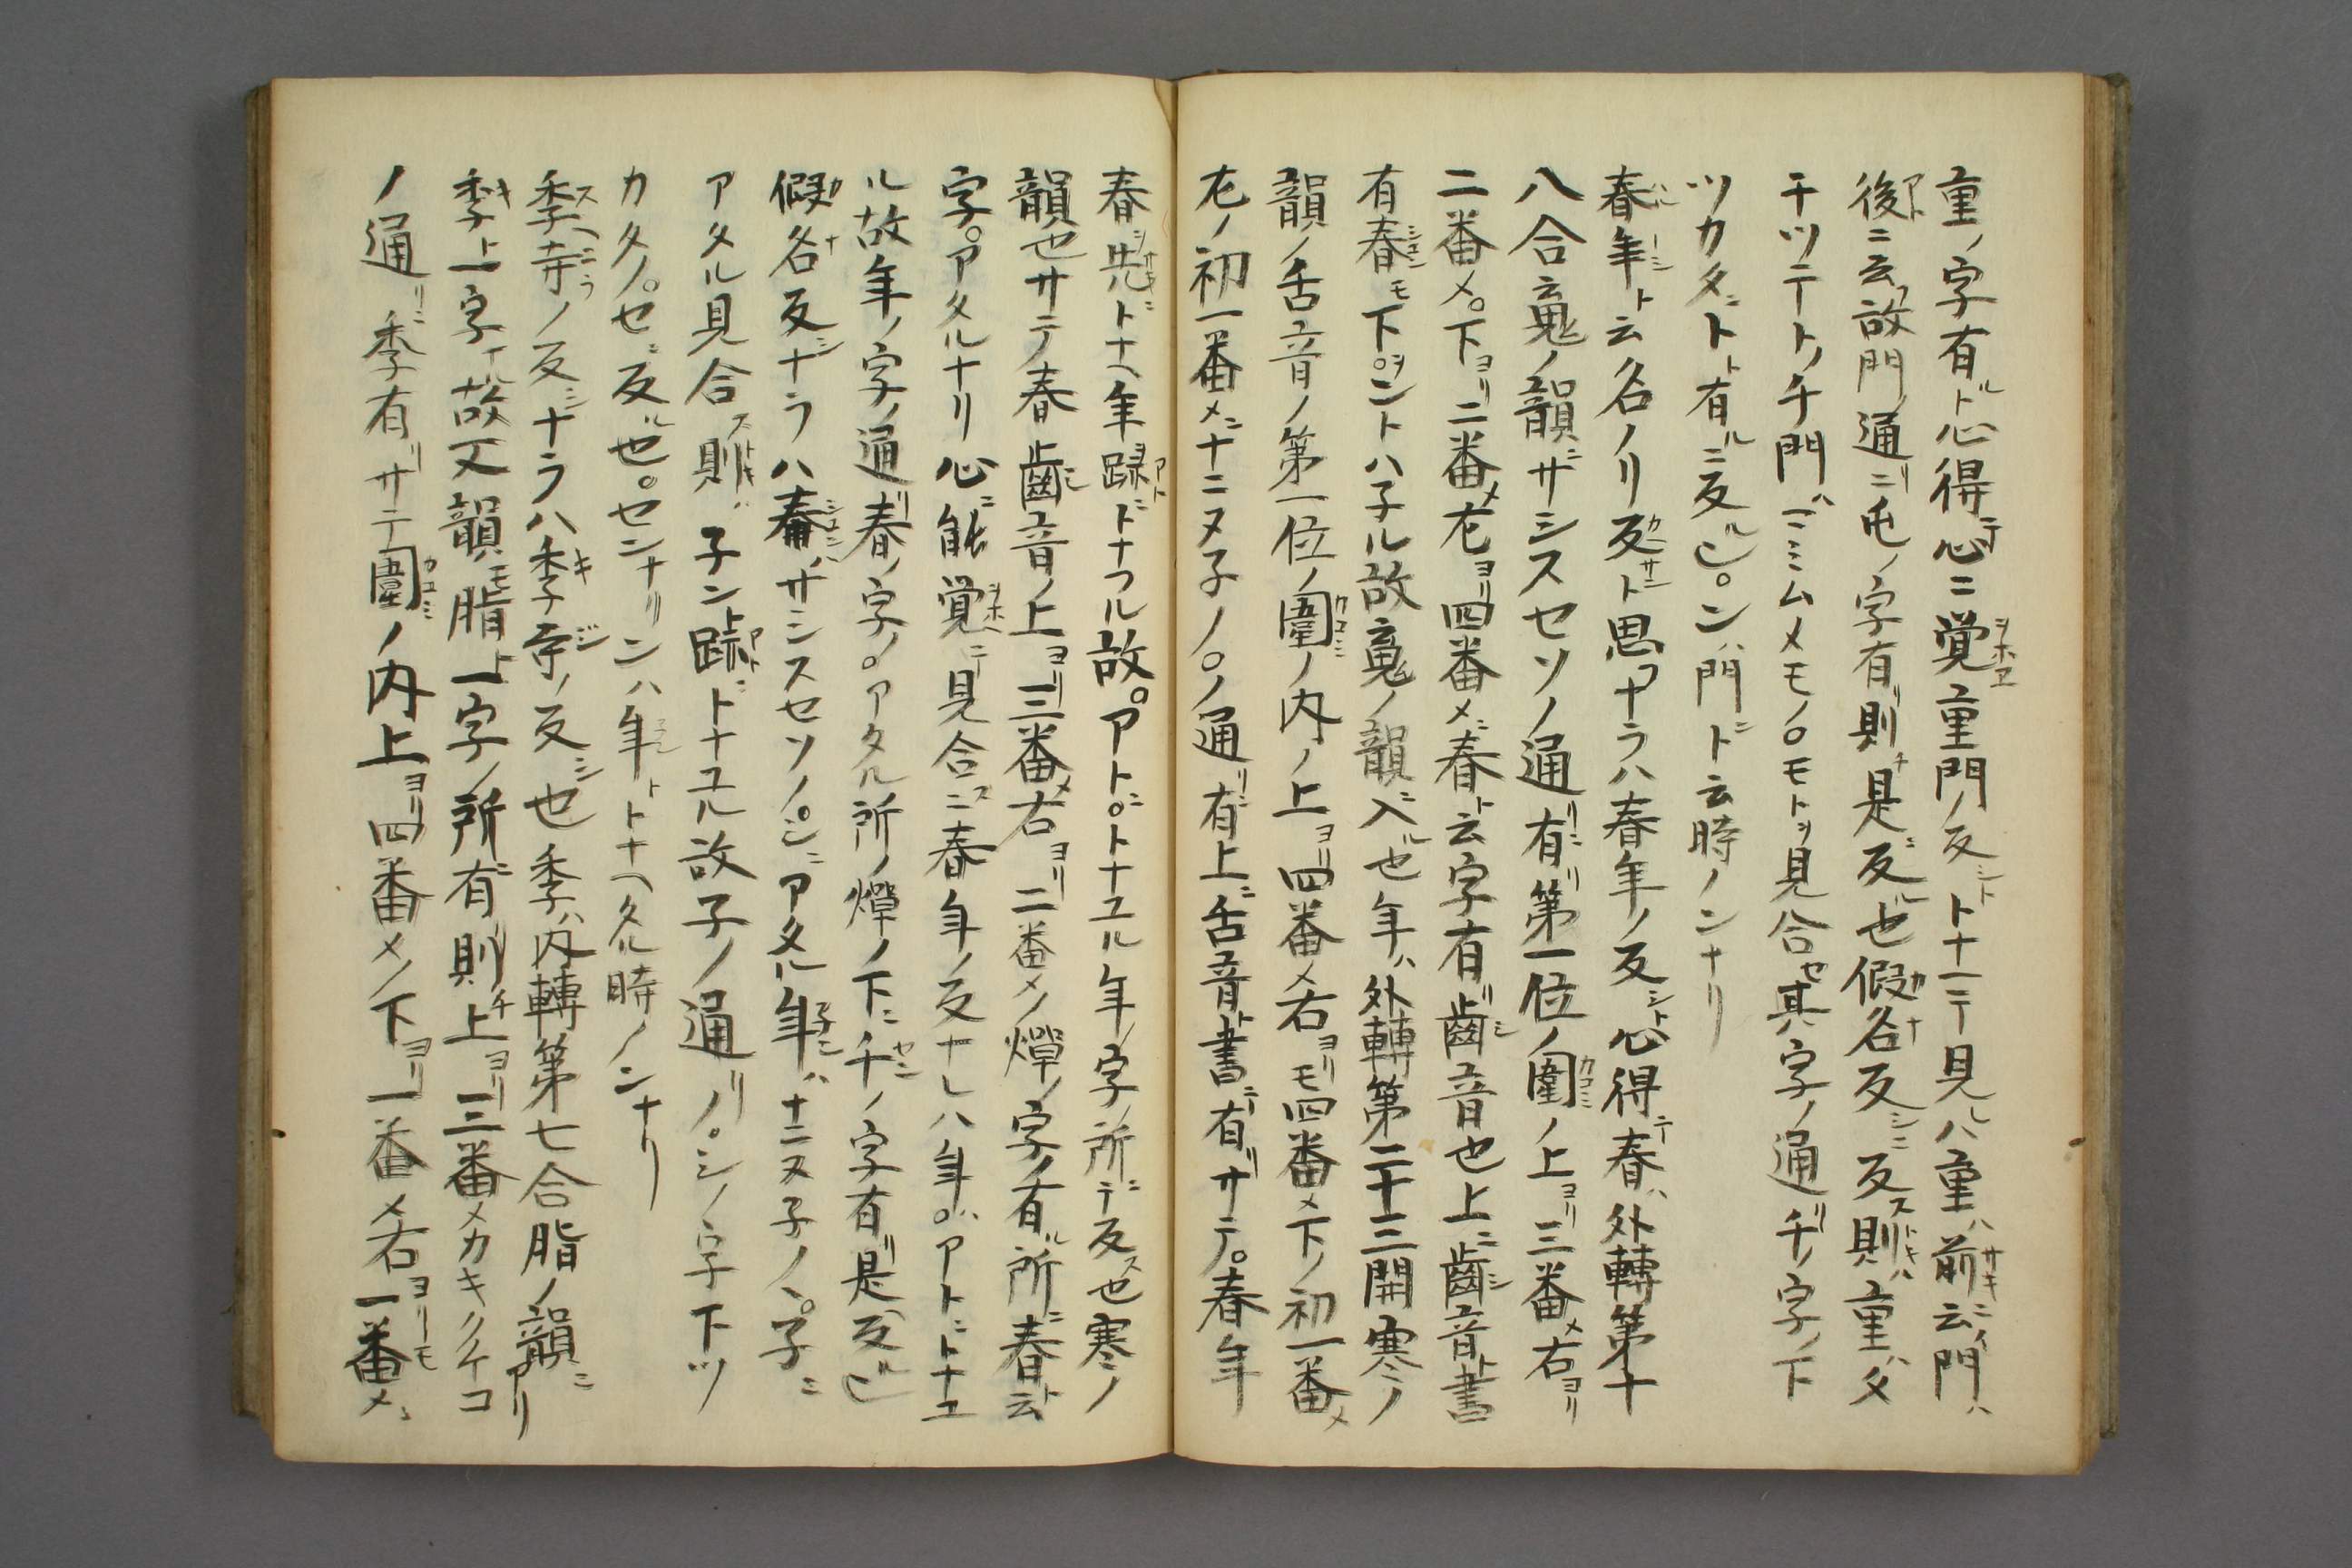 重ノ字有ルト心得テ心ニ覚重門ノ反シトトナ一テ見ルハ重ハ前ニ云イ門ハ
後ニ云故門通リニ屯ノ字有リ則チ是ニ反ル也假名反シニ反ス則ハ重ハタ
チツテトノチ門ハミミムメモノ○モトヲ見合セ其ノ字ノ通リチノ字ノ下
ツカタニトト有ルニ反ル也。ンハ門ドニ云時ノンナリ
春年ト云名ノリ反カサント思フナラハ春年ノ反シト心得テ春ハ外轉第十
八合䰟ノ韻ニサシスセソノ通リニ有リ第一位ノ圍ノ上ヨリ三番メ右ヨリ
二番メ。下ヨリ二番メ左ヨリ四番メニ春ト云字有リ齒音也上ニ齒音ト書
有春モ下。ヲントハ子ル故䰟ノ韻ニ入ル也年ハ外轉第二十三開寒ノ
韻ノ舌音ノ第一位ノ圍ノ内ノ上ヨリ四番メ右ヨリモ四番メ下ノ初一番メ
左ノ初一番メニナニヌ子ノ○ノ通リニ有上ニ舌音ト書テ有リサテ。春年
春先ニトナヘ年跡ニトナフル故。アト。ニトナユル年ノ字ノ所ニテ反ス也寒ノ
韻也サテノ春齒音ノ上ヨリ三番メ右ヨリ二番メノ燀ノ字ノ有ル所ニ春ト云
字。アタルナリ心ニ能覚ニテ見合スニ春年ノ反ナレハ年。ハアトニトナユ
ル故年ノ字ノ通リ春ノ字ノ。アタル所ノ燀ノ下ニ千ノ字有リ是ニ反ル也
假名反シナラハ春ハサシスセソノ。シニアタル年ハナニヌ子ノヘ。子ニ
アタル見合ス則ハ子ント跡ニトナユル故子ノ通リノ。シノ字下ツ
カタノ。セニ反ル也。センナリンハ年トトナヘタル時ノンナリ
季寺ノ反シナラハ季寺ノ反シ也季ハ内轉第七合脂ノ韻ニアリ
季上一字ナル故又韻モ脂ト一字ノ所ニ有則チ上ヨリ三番メカキクケコ
ノ通リニ季有リサテ圍ノ内上ヨリ四番メノ下ヨリ一番メ右ヨリモ一番メニ